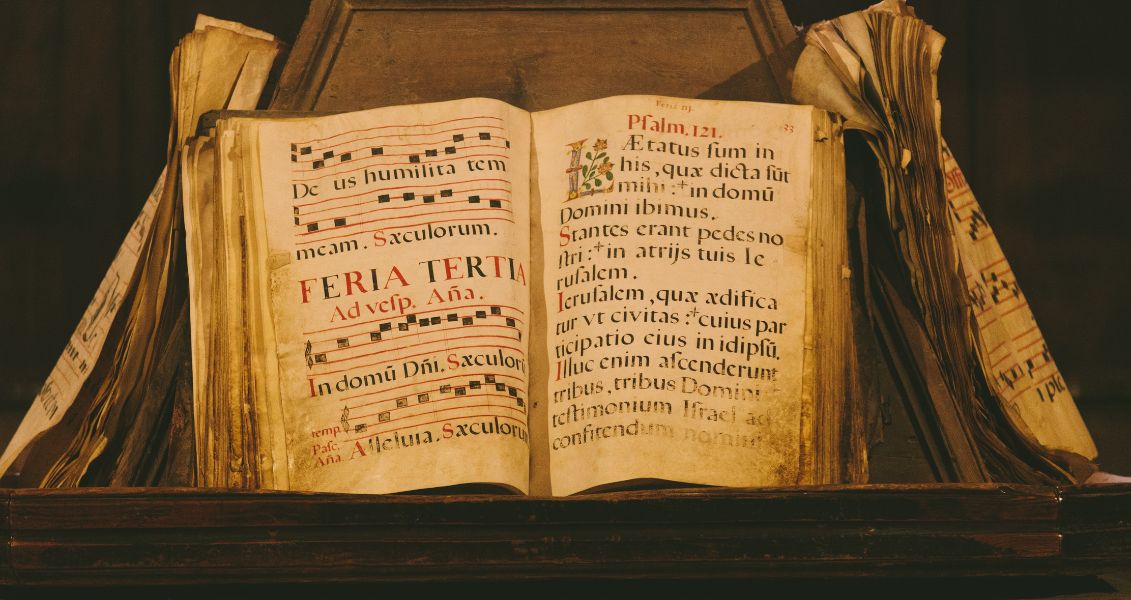 De us humilita tem
meam. Sæculorum.
FERIA TERTIA
Ad vesp. Aña.
In domū Dñi. Sæculorū
temp.
Pasc.
Aña. Alleluia. Sæculorum
Feria iij.
Psalm. 121.
33
Ætatus sum in
his, quæ dicta sūt
mihi :+ in domū
Domini ibimus.
Stantes erant pedes no
stri :+ in atrijs tuis Ie
rusalem.
Ierusalem, quæ ædifica
tur vt civitas :+ cuius par
ticipatio eius in idipsū.
Illuc enim ascenderunt
tribus, tribus Domini
testimonium Israel ad
confitendum nomini